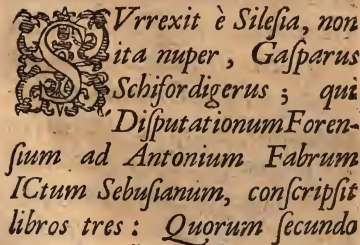 SVrrexit è Silesia, non
ita nuper, Gasparus
Schifordigerus; qui
Disputationum Foren-
sium ad Antonium Fabrum
ICtum Sebusianum, conscripsit
libros tres: Quorum secundo